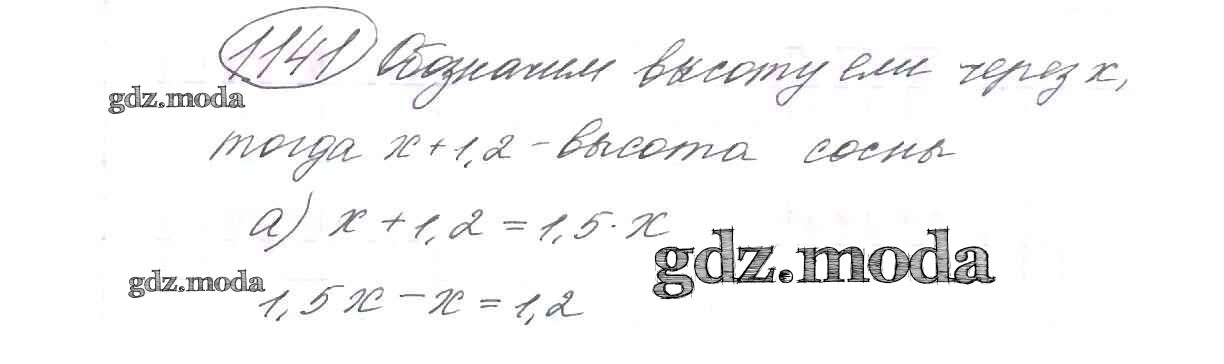 1141 Обозначим высоту ели через x,
gdz.moda
тогда x+1,2 - высота сосны
а) x + 1,2 = 1,5 · x
gdz.moda
gdz.moda
1,5x - x = 1,2